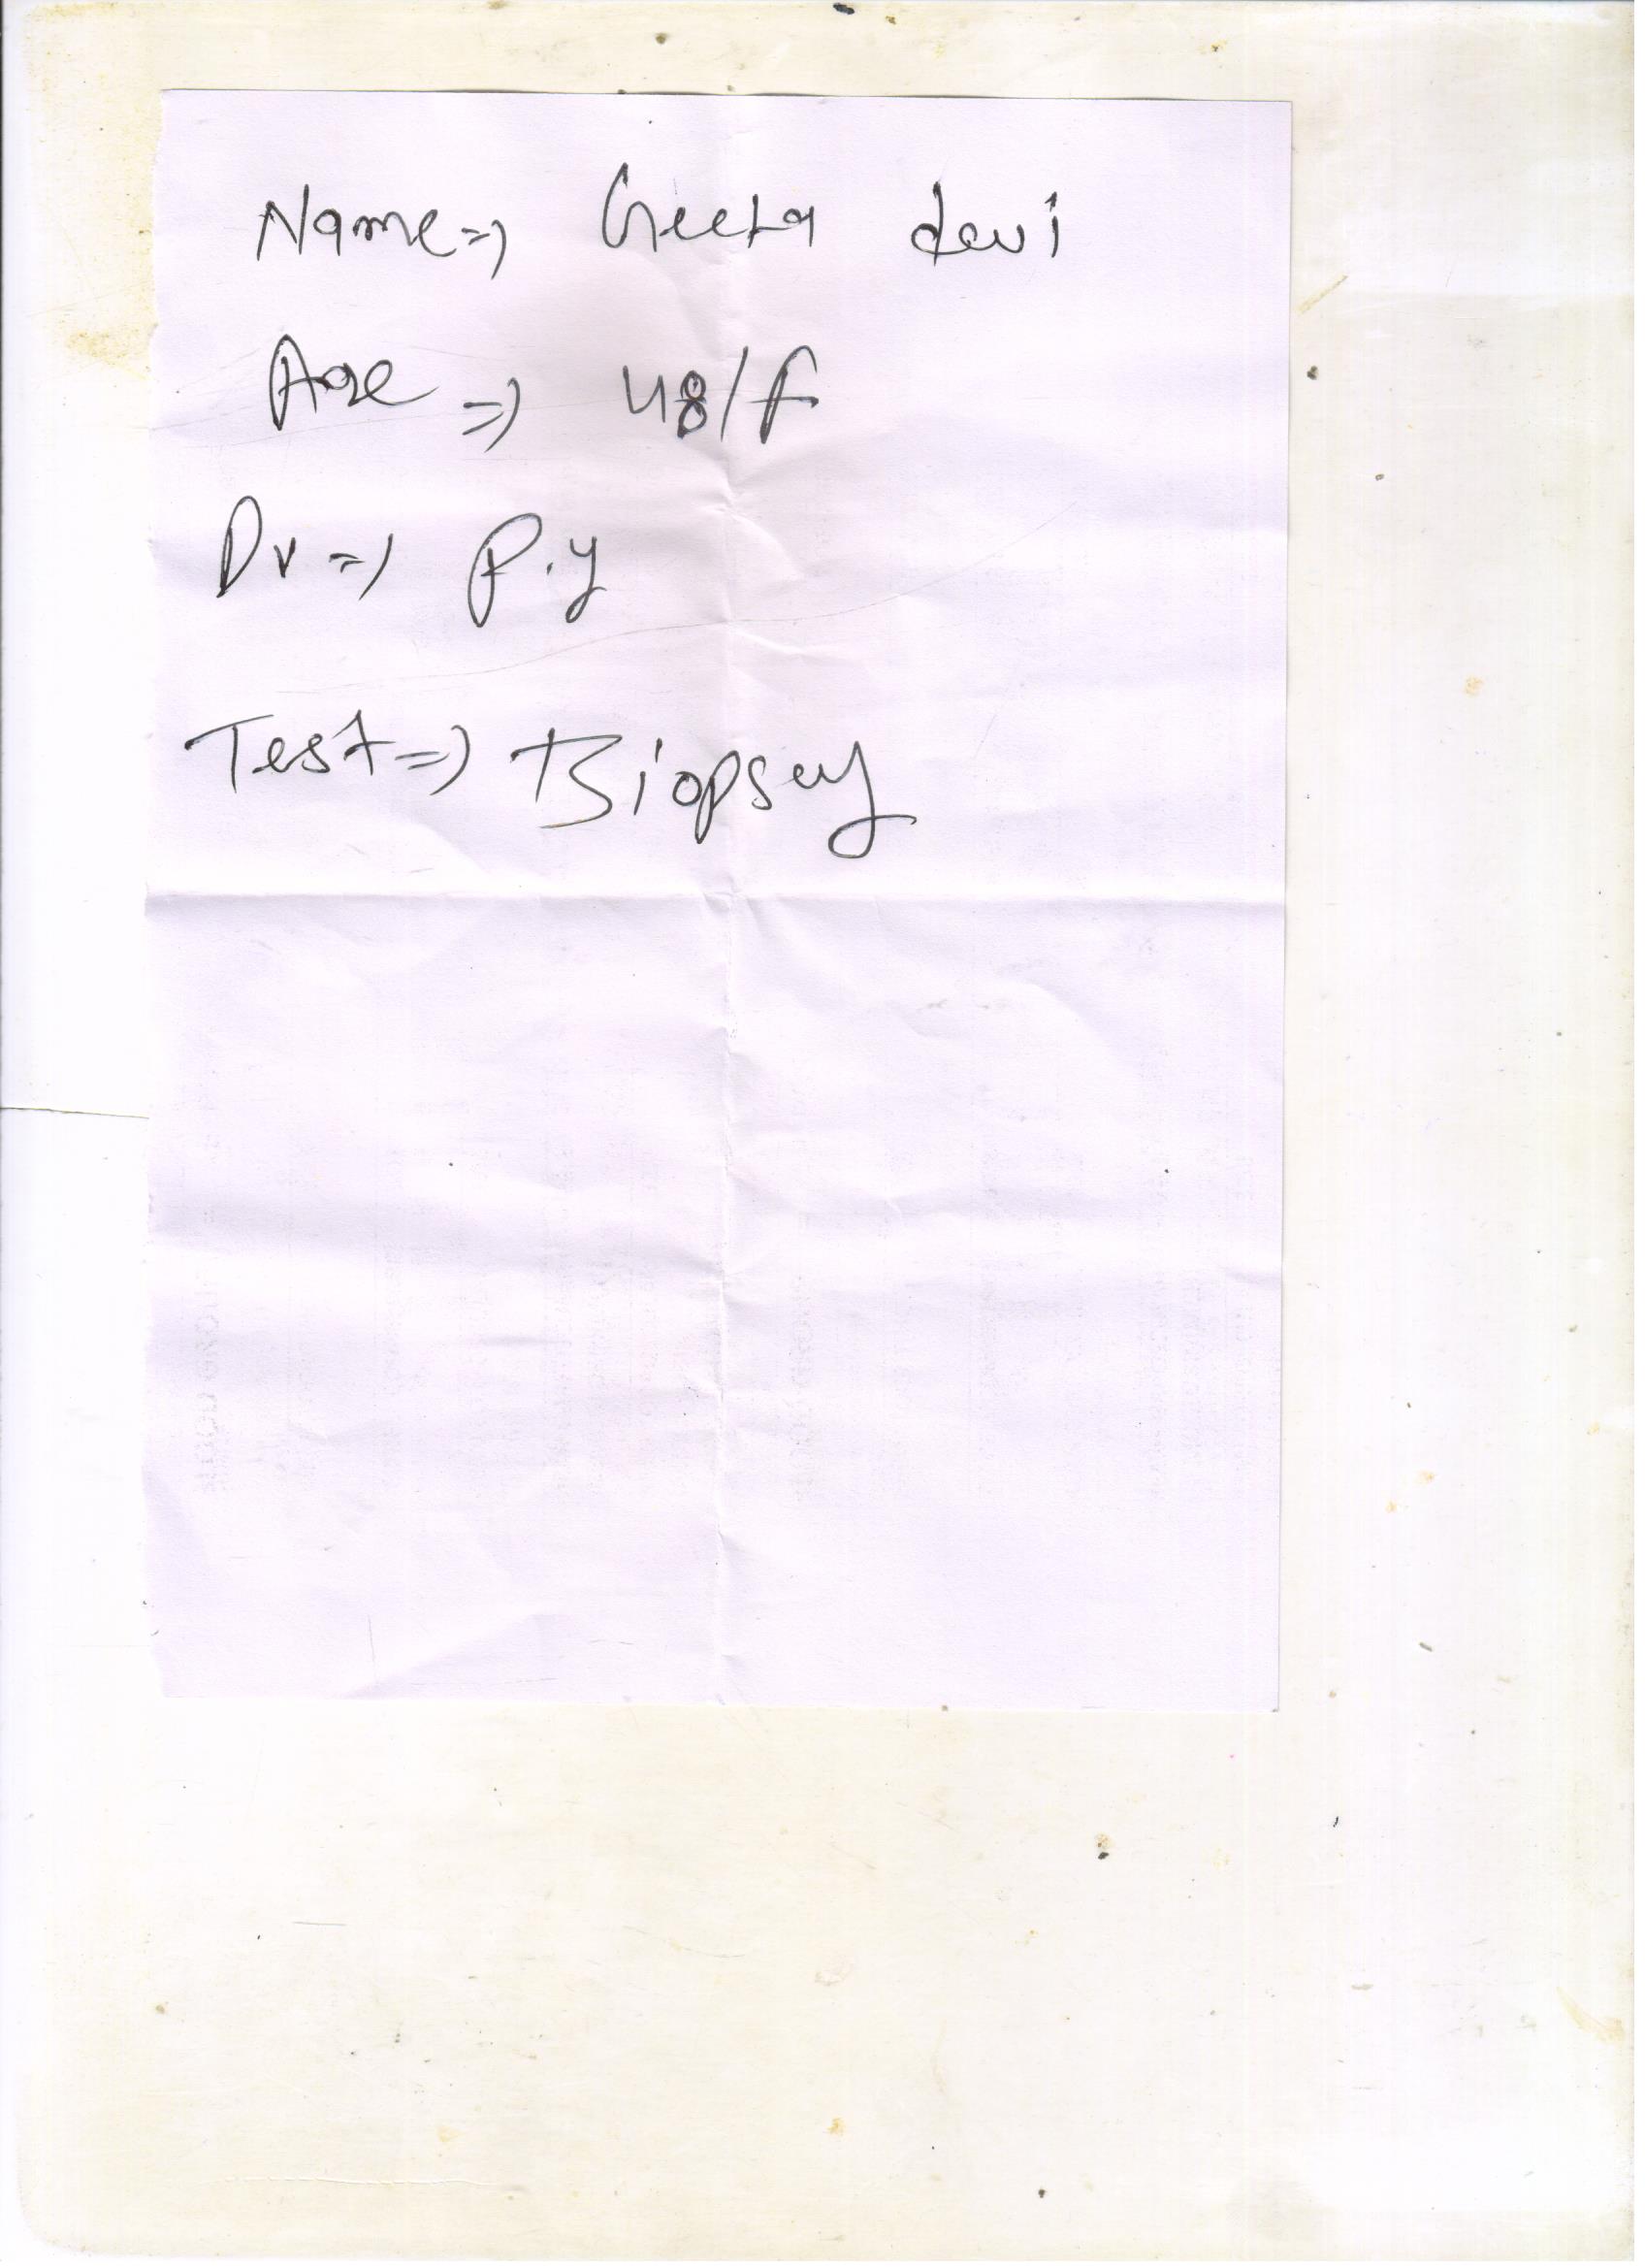 Name => Geeta devi
Age => 48/F
Dr => P.y
Test => Biopsey